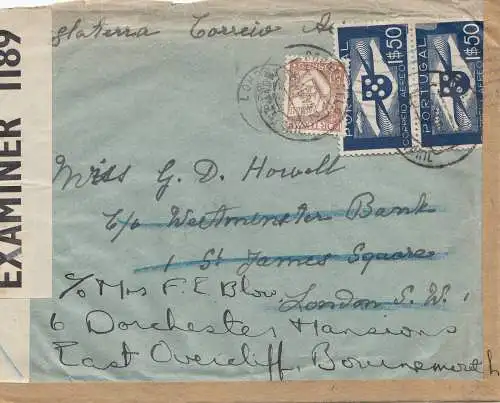 glaterra Correio
PORTUGAL
1$50
CORREIO AEREO
PORTUGAL
1$50
CORREIO AEREO
EXAMINER 1189
Miss G. D. Howell
c/o Westminster Bank
1 St James Square
London S. W. 1
c/o Mrs F. E. Blow.
6 Dorchester Mansions
East Overcliff, Bournemouth